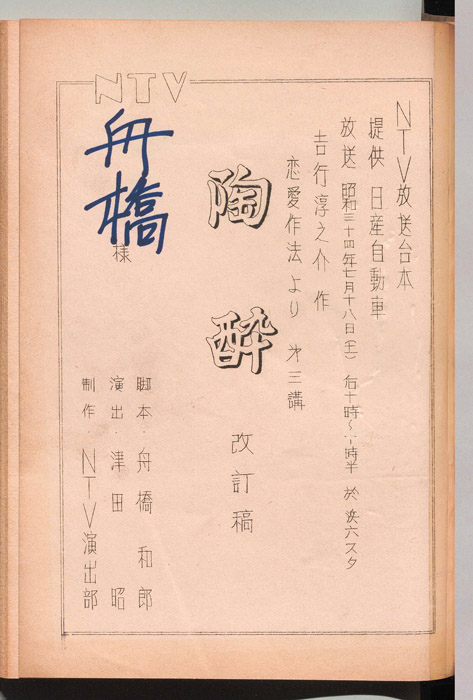 NTV
NTV放送台本
提供 日産自動車
放送 昭和三十四年七月十八日(土) 后十時〜十時半 於 浜六スタ
吉行淳之介 作
恋愛作法より 才三講
陶酔
改訂稿
脚本・舟橋和郎
演出・津田 昭
制作・NTV演出部
舟橋様